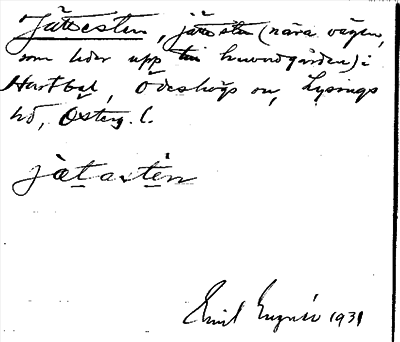 Jättesten, jättesten (nära vägen,
som leder upp till huvudgården) i
Hartbal, Ödeshögs sn, Lysings
hd, Österg. l.
jätastén
Emil 1931